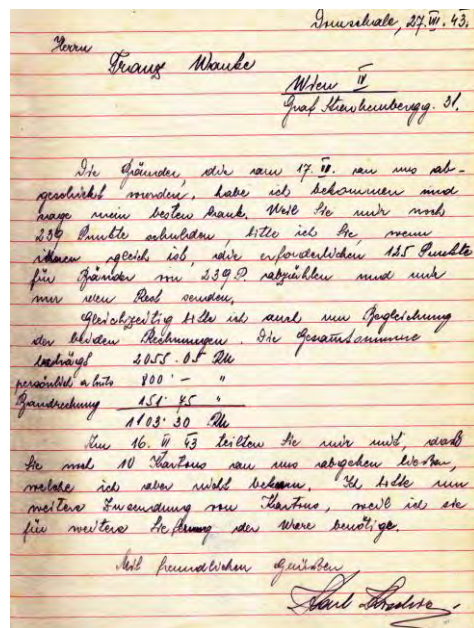 27. III. 43.
Herrn
Franz Wanke
Wien IV
Graf Starhembergg. 31.
Die Bänder, die am 17. III. an uns ab-
geschickt wurden, habe ich bekommen und
sage mein besten Dank. Weil Sie mir noch
239 Punkte schulden, bitte ich Sie, wenn
ihnen gleich ist, die erforderlichen 125 Punkte
für Bänder von 239 P. abzählen und mir
nur den Rest senden.
Gleichzeitig bitte ich auch um Begleichung
der beiden Rechnungen. Die Gesamtsumme
beträgt 2055.05 RM
persönlich erhalts 800.— "
Bandrechung 151.75 "
1103.30 RM
Am 16. III 43 teilten Sie mir mit, daß
Sie noch 10 Kartons an uns abgehen ließen,
welche ich aber nicht bekam. Ich bitte um
weitere Zusendung von Kartons, weil ich sie
für weitere Lieferung der Ware benötige.
Mit freundlichen Grüßen
Karl